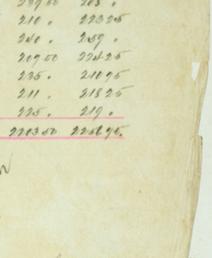 210 . 223 25
240 . 259 .
209 50 224 25
235 . 210 95
211 . 218 25
225 . 219 .
2203 50 2256 95